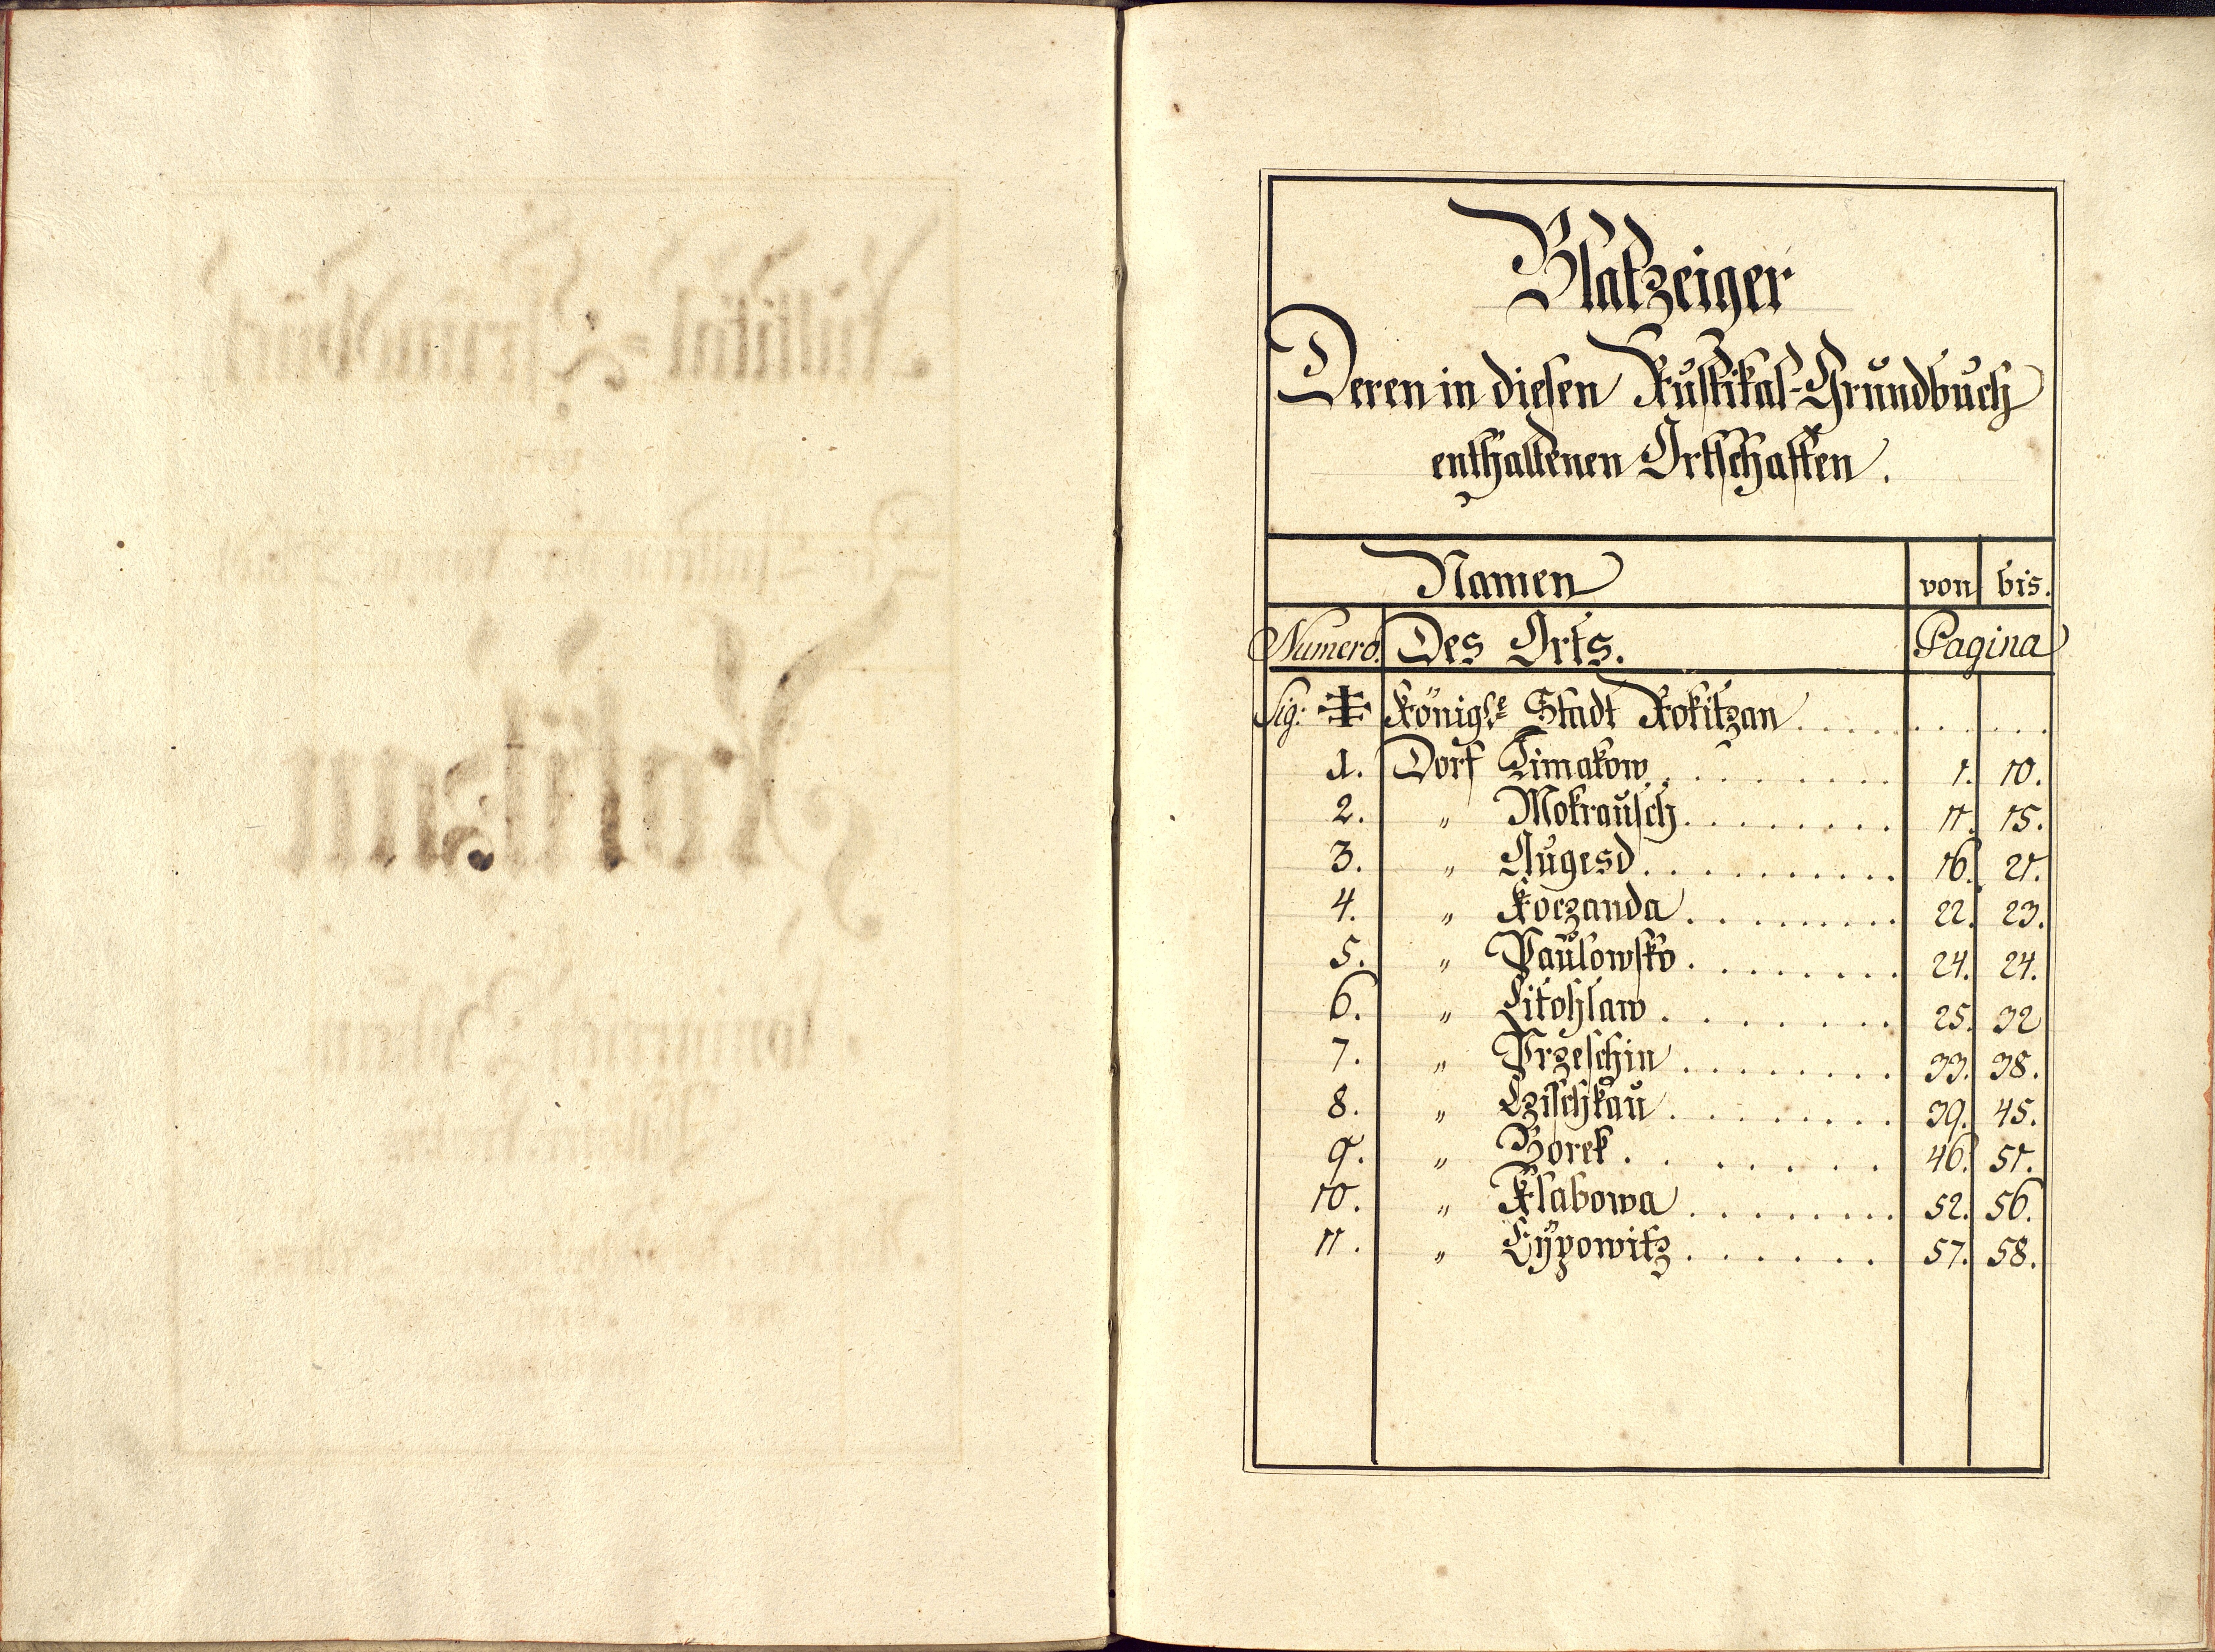 Blatzeiger
Deren in diesen Rustikal-Grundbuch
enthaltenen Ortschaften.
Namen von bis.
Numero. Des Orts. Pagina
Sig: ‡ Königle Stadt Rokitzan . . . . . . . . .
1. Dorf Timakow . . . . . . . . . 1. 10.
2. " Mokrausch . . . . . . . . 11. 15.
3. " Augesd . . . . . . . . . . . 16. 21.
4. " Koczanda . . . . . . . . . 22. 23.
5. " Paulowsko . . . . . . . . 24. 24.
6. " Litohlaw . . . . . . . 25. 32
7. " Przeschin . . . . . . . . 33. 38.
8. " Czischkau . . . . . . . . 39. 45.
9. " Borek . . . . . . . . 46. 51.
10. " Klabowa . . . . . . . . . 52. 56.
11. " Eÿpowitz . . . . . . . 57. 58.